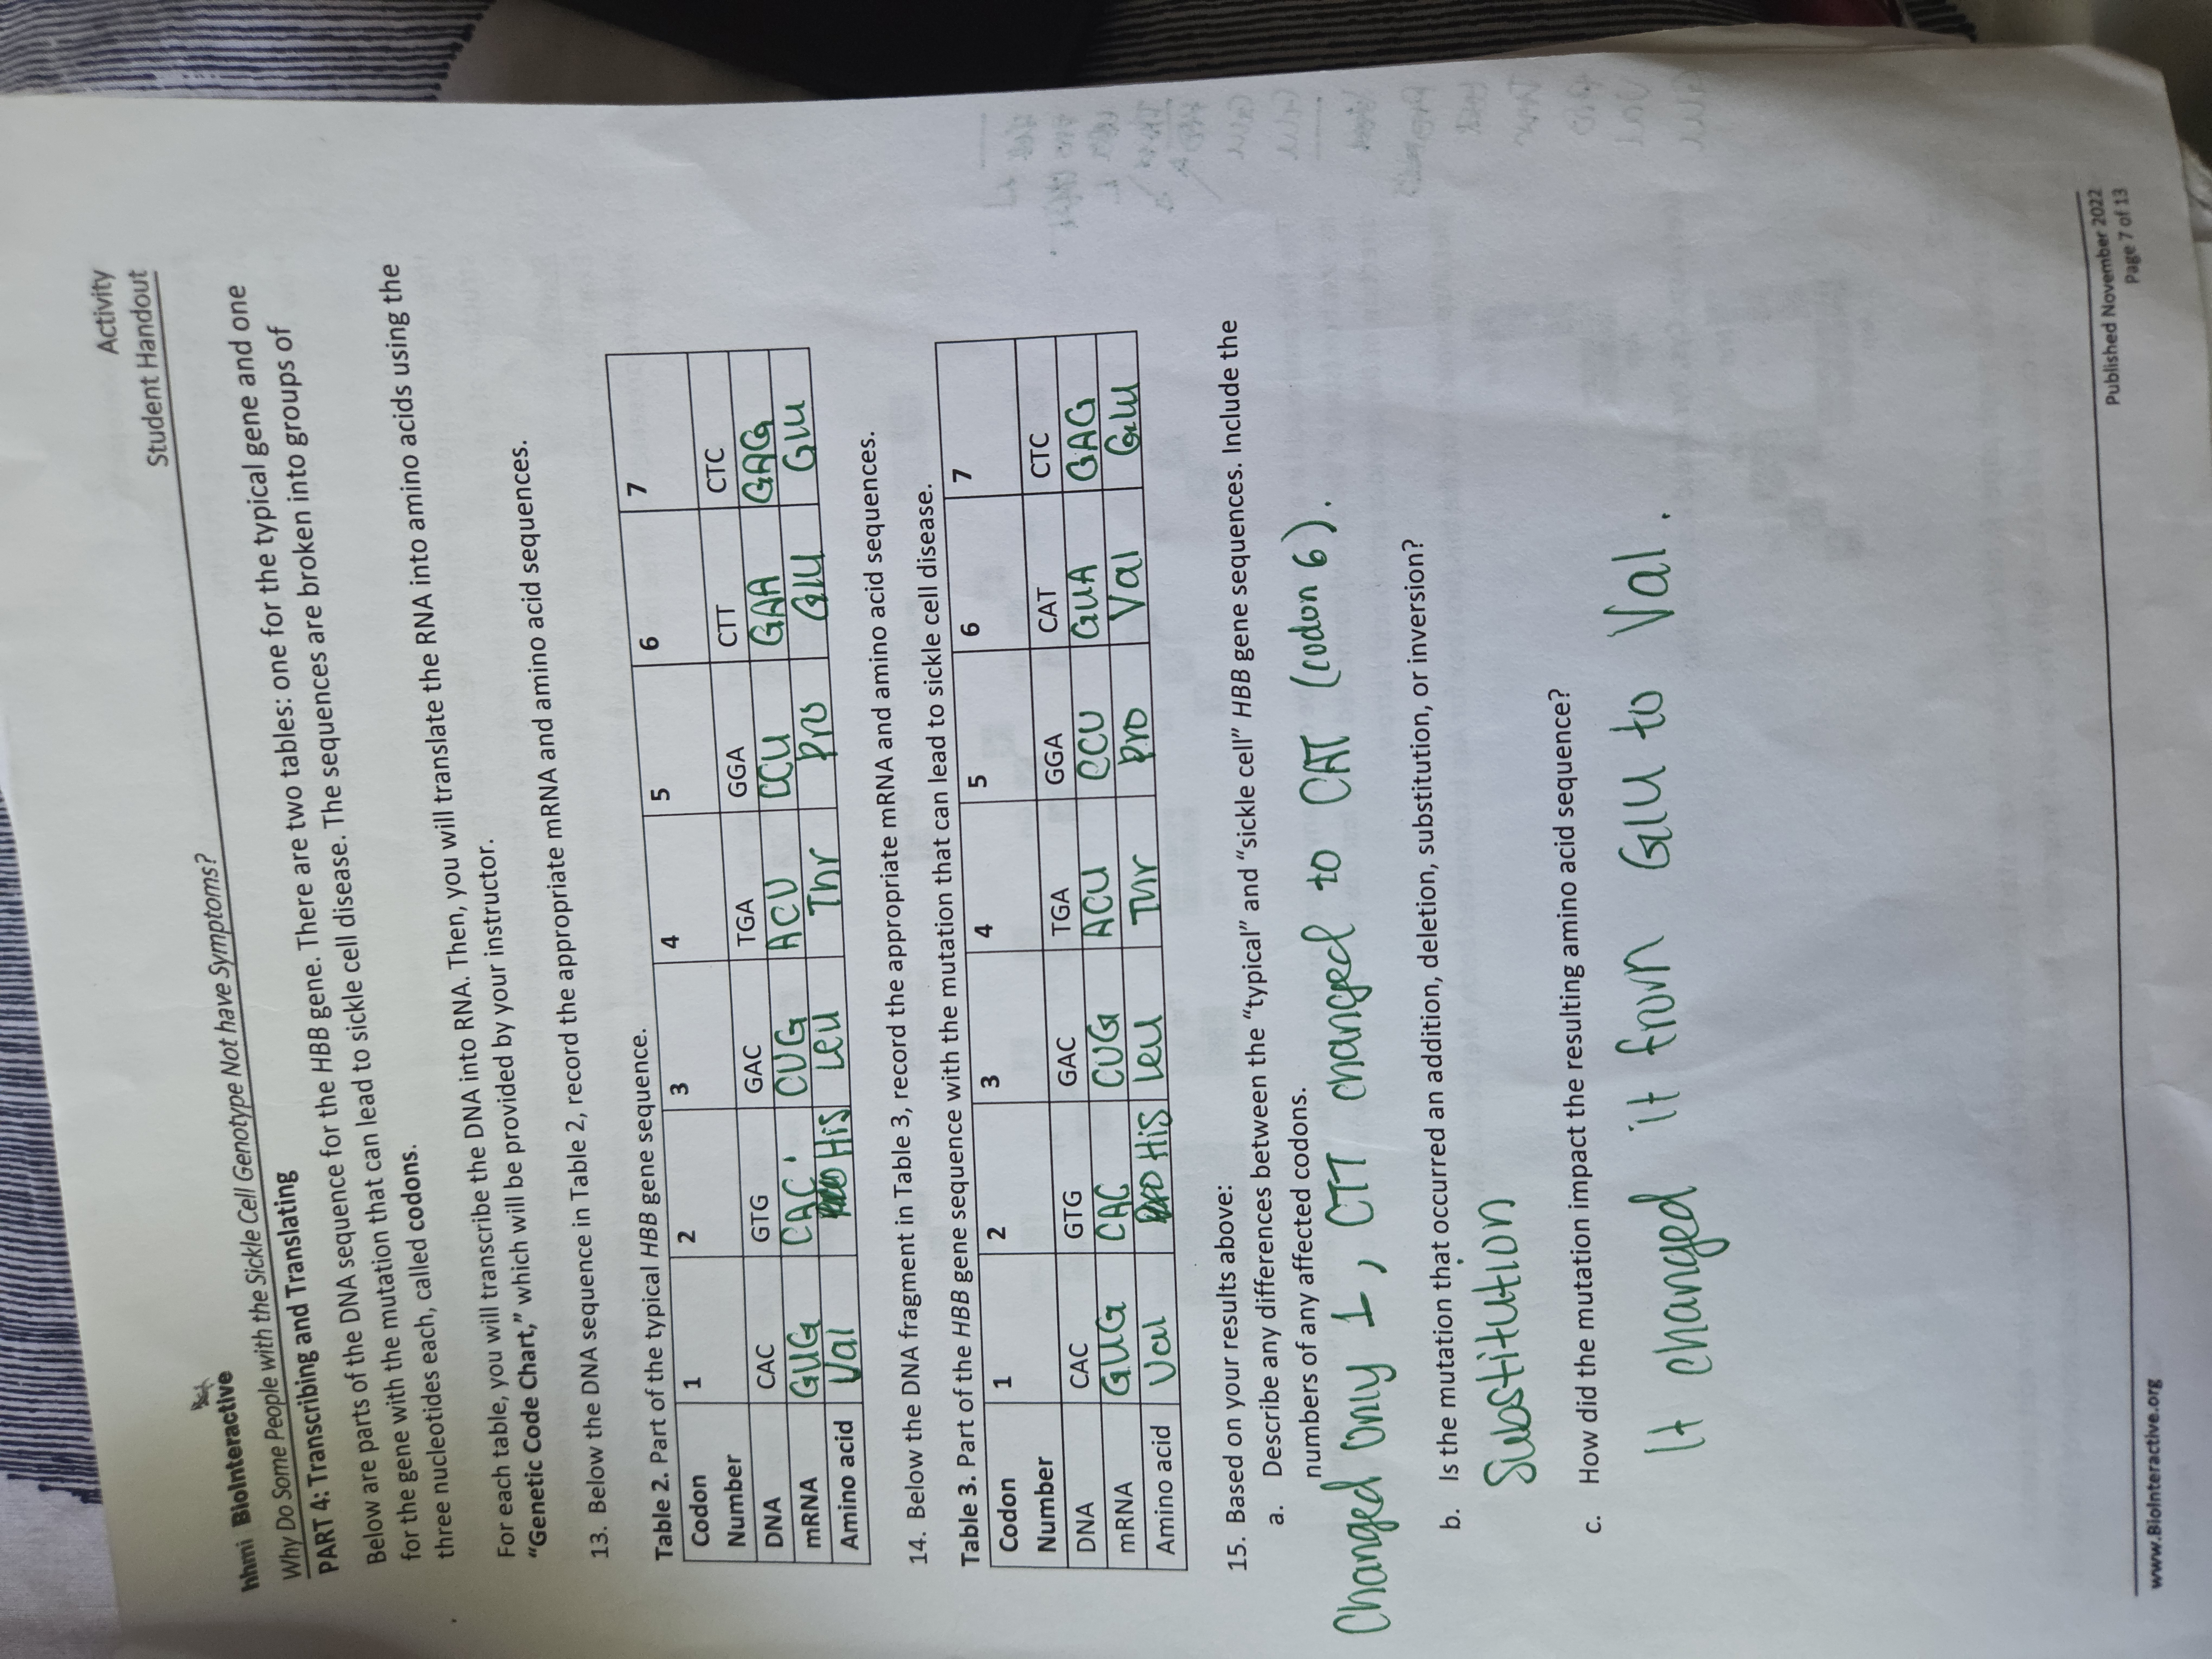 Activity
hhmi BioInteractive Student Handout
Why Do Some People with the Sickle Cell Genotype Not have Symptoms?
PART 4: Transcribing and Translating
Below are parts of the DNA sequence for the HBB gene. There are two tables: one for the typical gene and one
for the gene with the mutation that can lead to sickle cell disease. The sequences are broken into groups of
three nucleotides each, called codons.
For each table, you will transcribe the DNA into RNA. Then, you will translate the RNA into amino acids using the
“Genetic Code Chart,” which will be provided by your instructor.
13. Below the DNA sequence in Table 2, record the appropriate mRNA and amino acid sequences.
Table 2. Part of the typical HBB gene sequence.
Codon 1 2 3 4 5 6 7
Number
DNA CAC GTG GAC TGA GGA CTT CTC
mRNA GUG CAC CUG ACU CCU GAA GAG
Amino acid Val His Leu Thr Pro Glu Glu
14. Below the DNA fragment in Table 3, record the appropriate mRNA and amino acid sequences.
Table 3. Part of the HBB gene sequence with the mutation that can lead to sickle cell disease.
Codon 1 2 3 4 5 6 7
Number
DNA CAC GTG GAC TGA GGA CAT CTC
mRNA GUG CAC CUG ACU CCU GUA GAG
Amino acid Val His Leu Thr Pro Val Glu
15. Based on your results above:
a. Describe any differences between the “typical” and “sickle cell” HBB gene sequences. Include the
numbers of any affected codons.
Changed only 1, CTT changed to CAT (codon 6).
b. Is the mutation that occurred an addition, deletion, substitution, or inversion?
Substitution
c. How did the mutation impact the resulting amino acid sequence?
It changed it from Glu to Val.
www.BioInteractive.org Published November 2022
Page 7 of 13